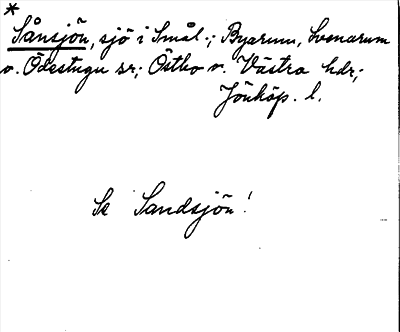 *
Sånsjön, sjö i Smål.; Byarum, Svenarum
o. Ödestugu sr; Östbo o. Västra hdr;
Jönköp. l.
Se Sandsjön!